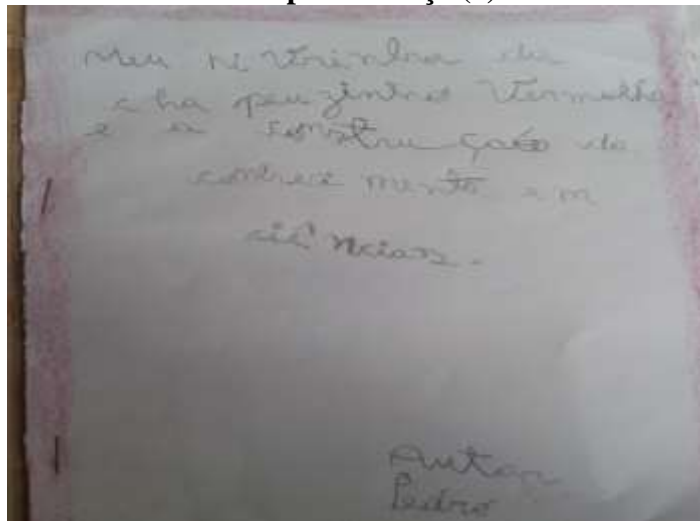 Meu ni vrinho da
cha peu zinho Vermelho
e a constru ção do
conheci mento em
ciê ncias.
Autor
Pedro